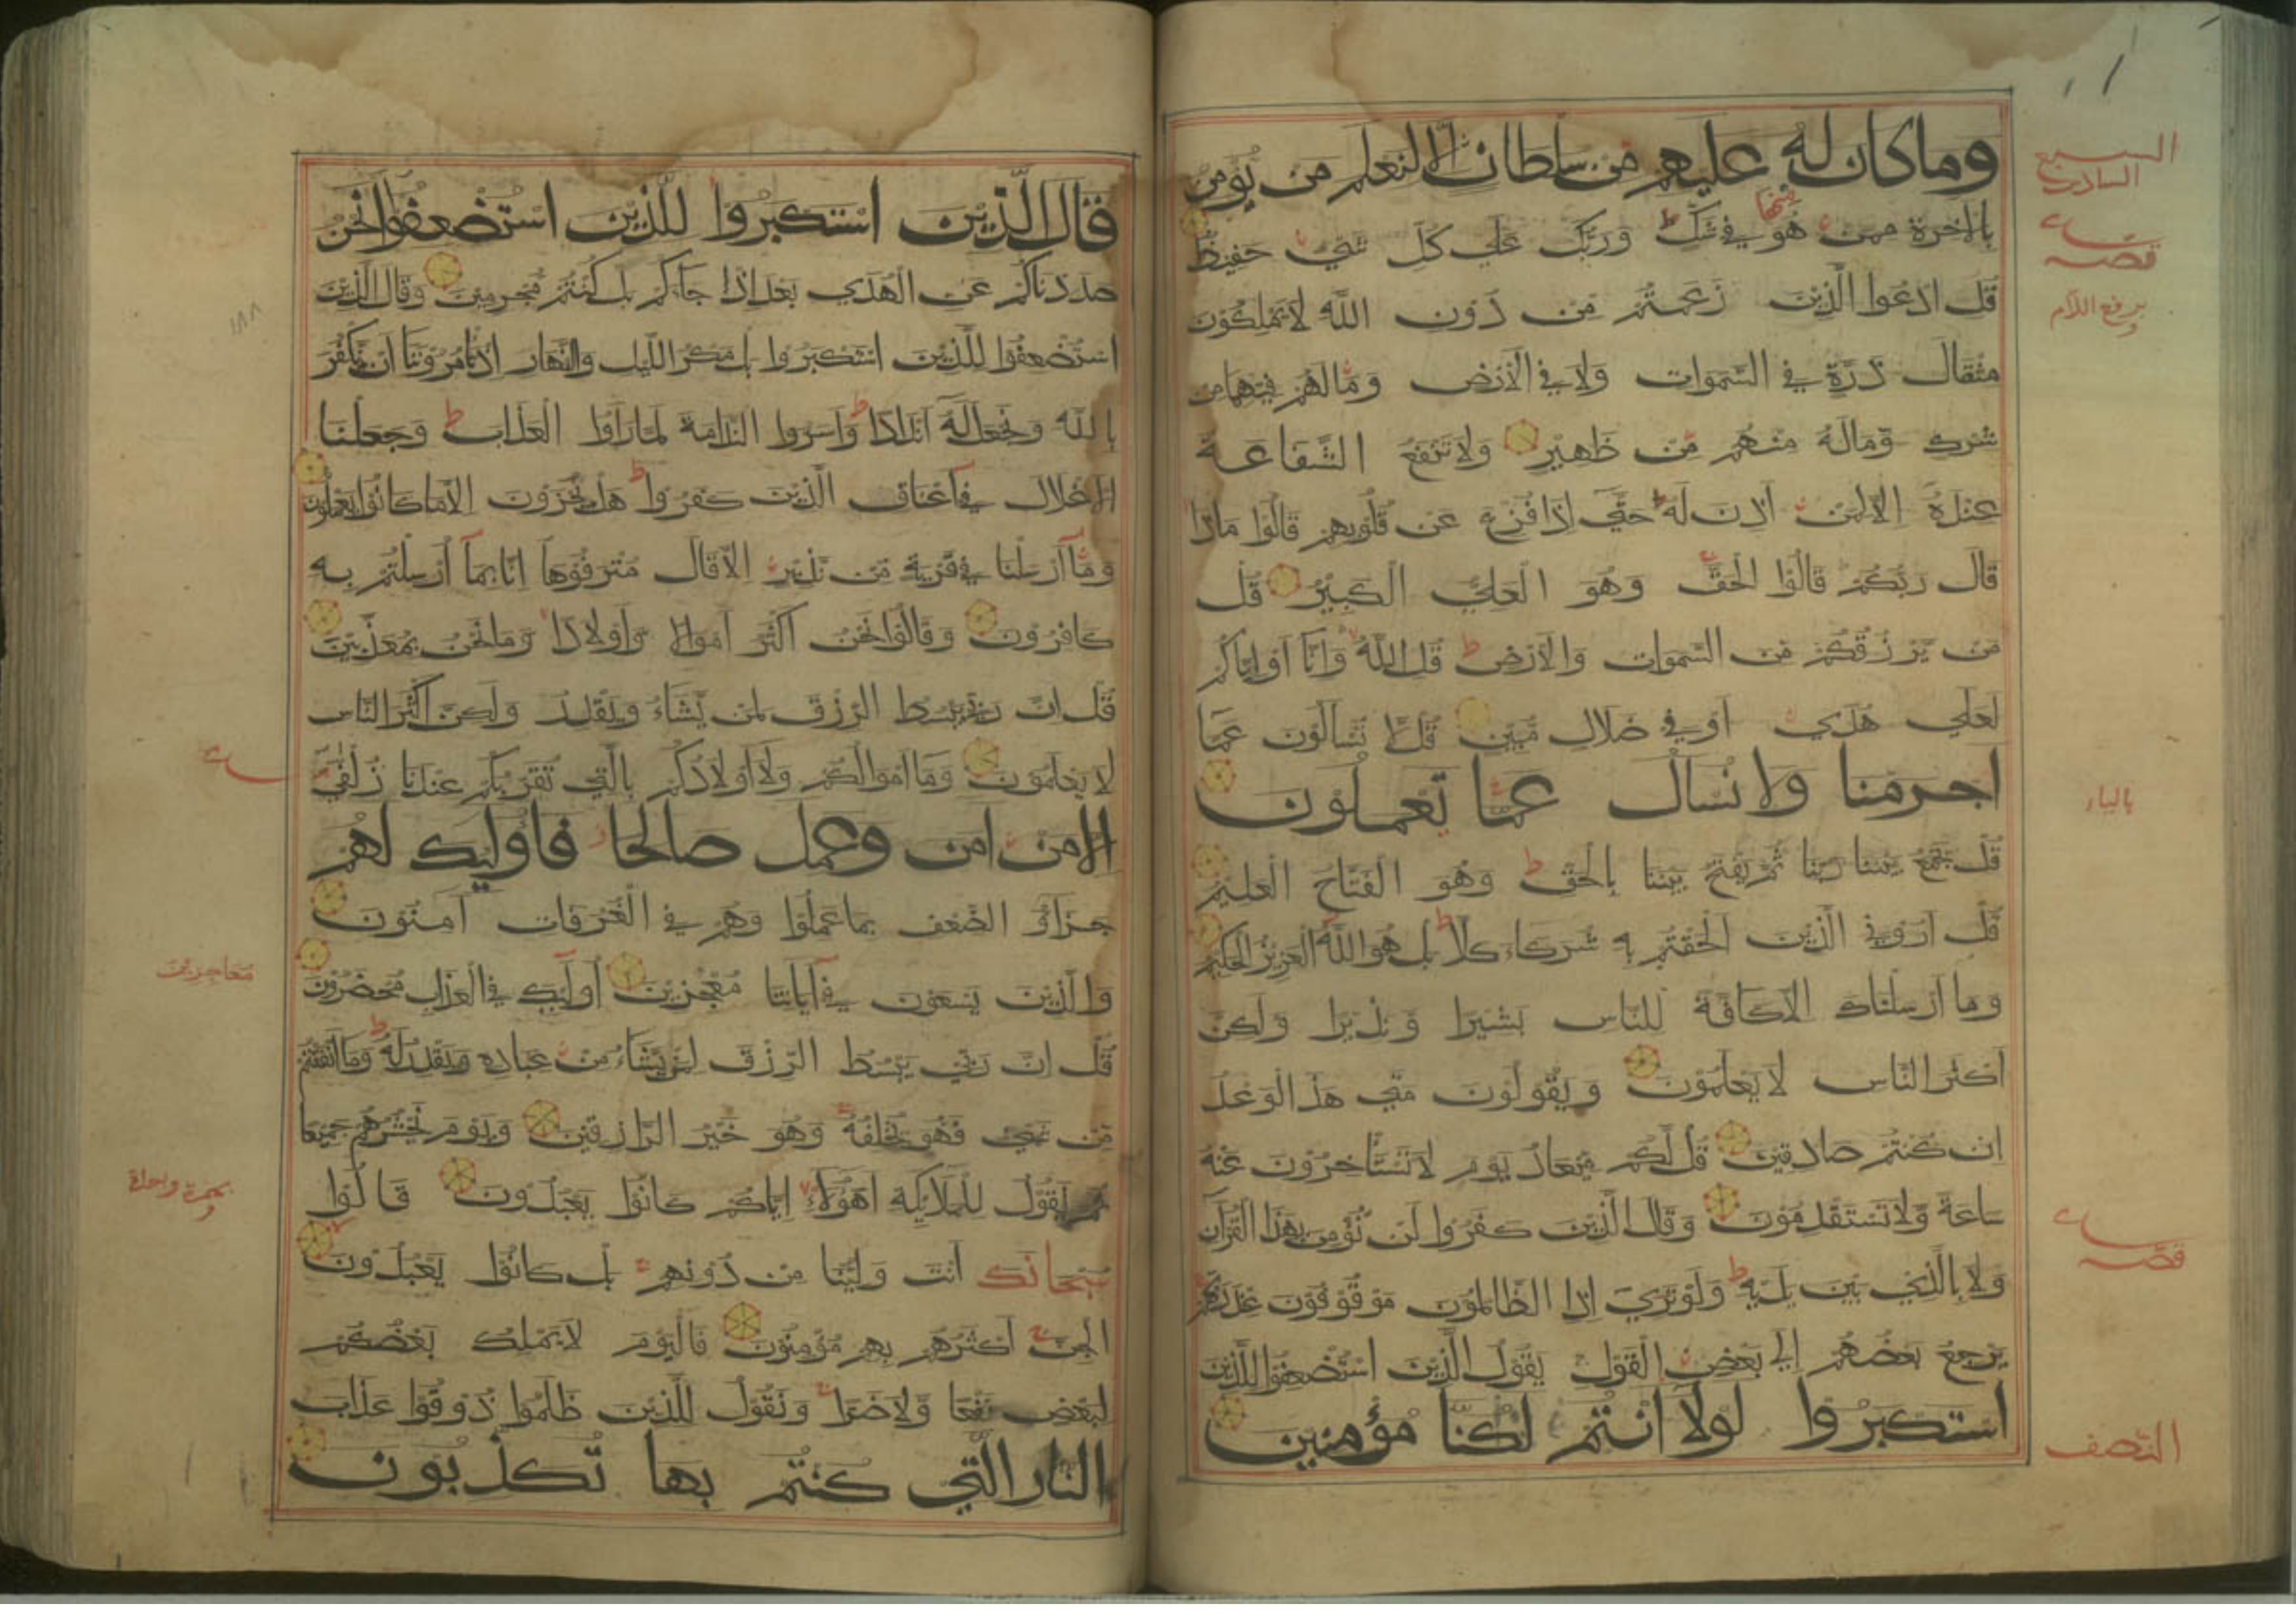 وما كان له عليهم من سلطان الا لنعلم من يؤمن
بالاخرة ممن هو منها في شك وربك علي كل شئ حفيظ
قل ادعوا الذين زعمتم من دون الله لا يملكون
مثقال ذرة في السموات ولا في الارض وما لهم فيهما من
شرك وماله منهم من ظهير ولا تنفع الشفاعة
عنده الا لمن اذن له حتي اذا فزع عن قلوبهم قالوا ماذا
قال ربكم قالوا الحق وهو العلي الكبير قل
من يرزقكم من السموات والارض قل الله وانا او اياكم
لعلي هدي او في ضلال مبين قل لا تسألون عما
اجرمنا ولا نسأل عما تعملون
قل يجمع بيننا ربنا ثم يفتح بيننا بالحق وهو الفتاح العليم
قل اروني الذين الحقتم به شركاء كلا بل هو الله العزيز الحكيم
وما ارسلناك الا كافة للناس بشيرا ونذيرا ولكن
اكثر الناس لا يعلمون ويقولون متي هذا الوعد
ان كنتم صادقين قل لكم ميعاد يوم لا تستأخرون عنه
ساعة ولا تستقدمون وقال الذين كفروا لن نؤمن بهذا القرآن
ولا بالذي بين يديه ولو تري اذا الظالمون موقوفون عند ربهم
يرجع بعضهم الي بعض القول يقول الذين استضعفوا للذين
استكبروا لولا انتم لكنا مؤمنين
السبع
السادس
قصه
برفع اللام
بالياء
قصه
النصف
قال الذين استكبروا للذين استضعفوا انحن
صددناكم عن الهدي بعد اذا جاءكم بل كنتم مجرمين وقال الذين
استضعفوا للذين استكبروا بل مكر الليل والنهار اذ تأمروننا ان نكفر
بالله ونجعل له اندادا واسروا الندامة لما راوا العذاب وجعلنا
الاغلال في اعناق الذين كفروا هل يجزون الا ما كانوا يعملون
وما ارسلنا في قرية من نذير الا قال مترفوها انا بما أرسلتم به
كافرون وقالوا نحن اكثر اموالا واولادا وما نحن بمعذبين
قل ان ربي يبسط الرزق لمن يشاء ويقدر ولكن اكثر الناس
لا يعلمون وما اموالكم ولا اولادكم بالتي تقربكم عندنا زلفي
الا من امن وعمل صالحا فاوليك لهم
جزاؤ الضعف بما عملوا وهم في الغرفات آمنون
والذين يسعون في آياتنا معجزين أوليك في العذاب محضرون
قل ان ربي يبسط الرزق لمن يشاء من عباده ويقدر له وما انفقتم
من شئ فهو يخلفه وهو خير الرازقين ويوم نحشرهم جميعا
ثم نقول للملايكة اهؤلاء اياكم كانوا يعبدون قالوا
سبحانك انت ولينا من دونهم بل كانوا يعبدون
الجن اكثرهم بهم مؤمنون فاليوم لا يملك بعضكم
لبعض نفعا ولا ضرا ونقول للذين ظلموا ذوقوا عذاب
النار التي كنتم بها تكذبون
١٨٨
معاجزين
بهمزة واحدة